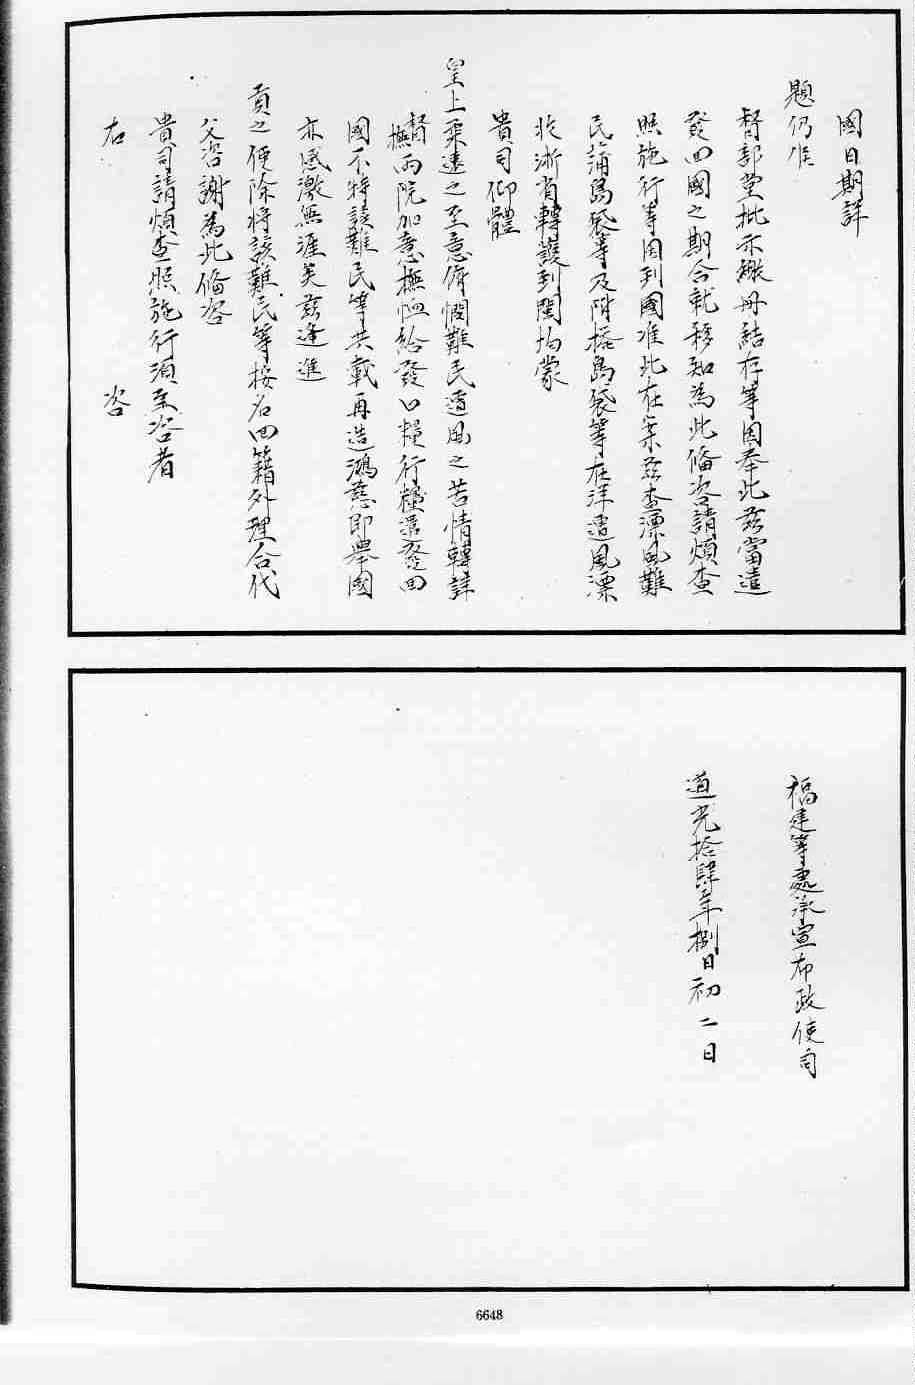 國日期詳
題仍准
督部堂批示繳册結存等因奉此玆當遣
發回國之期合就移知為此備咨請煩查
照施行等因到國准此在案玆查漂風難
民蒲島袋等及附搭島袋等在洋遭風漂
收浙省轉護到閩均蒙
貴司仰體
皇上柔遠之至意俯憫難民遭風之苦情轉詳
督撫兩院加意撫恤給發口糧行糧遣發回
國不特該難民等共載再造鴻慈即舉國
亦感激無涯矣玆逢進
貢之便除將該難民等按名回籍外理合代
父咨謝為此備咨
貴司請煩查照施行須至咨者
右 咨
福建等處承宣布政使司
道光拾肆年捌月初二日
6648